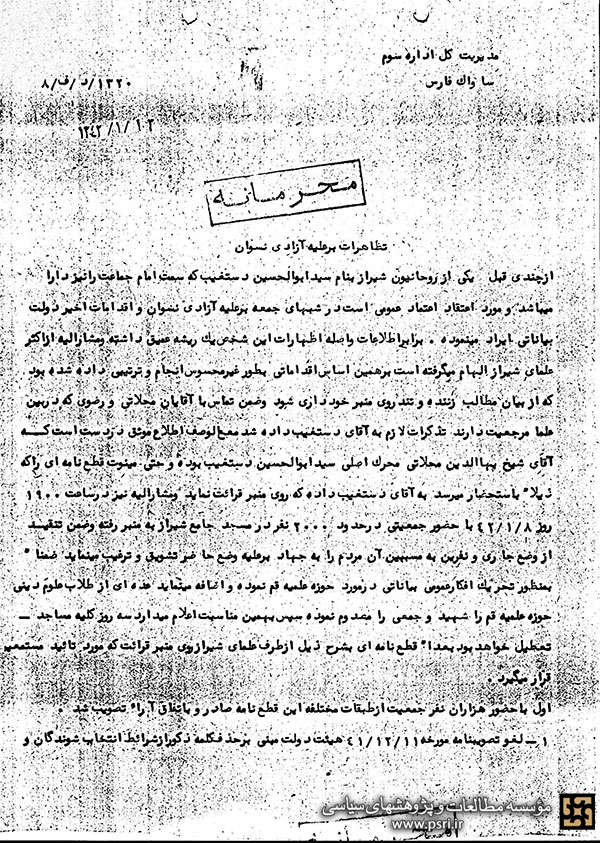 مدیریت کل اداره سوم
ساواک فارس
۸/ف/د/۱۳۲۰
۱۳۴۲/۱/۱۲
محرمانه
تظاهرات برعلیه آزادی نسوان
ازچندی قبل یکی ازروحانیون شیرازبنام سیدابوالحسین دستغیب که سمت امام جماعت رانیز دارا
میباشد و مورد اعتقاد اعتماد عمومی است درشبهای جمعه برعلیه آزادی نسوان و اقدامات اخیر دولت
بیاناتی ایراد مینموده . برابراطلاعات واصله اظهارات این شخص یک ریشه عمیق داشته ومشارالیه ازاکثر
علمای شیراز الهام میگرفته است برهمین اساس اقداماتی بطور غیرمحسوس انجام و ترتیبی داده شده بود
که ازبیان مطالب زننده و تندروی منبر خودداری شود وضمن تماس با آقایان محلاتی و رضوی که دربین
علما مرجعیت دارند تذکرات لازم به آقای دستغیب داده شد مع الوصف اطلاع موثق دردست است که
آقای شیخ بهاالدین محلاتی محرک اصلی سیدابوالحسین دستغیب بوده و حتی مینوت قطع نامه ای راکه
ذیلاً باستحضار میرسد به آقای دستغیب داده که روی منبر قرائت نماید ومشارالیه نیز درساعت ۱۹۰۰
روز ۴۲/۱/۸ با حضور جمعیتی درحدود ۲۰۰۰ نفر در مسجد جامع شیراز به منبر رفته وضمن تنقید
از وضع جاری و نفرین به مسببین آن مردم را به جهاد برعلیه وضع حاضر تشویق و ترغیب مینماید ضمناً
بمنظور تحریک افکارعمومی بیاناتی درمورد حوزه علمیه قم نموده و اضافه مینماید عده ای از طلاب علوم دینی
حوزه علمیه قم را شهید و جمعی را مصدوم نموده سپس بهمین مناسبت اعلام میدارد سه روز کلیه مساجد ـ
تعطیل خواهد بود بعداً قطع نامه ای بشرح ذیل ازطرف علمای شیرازروی منبر قرائت که مورد تائید مستمعین
قرار میگیرد .
اول با حضور هزاران نفر جمعیت ازطبقات مختلفه این قطع نامه صادر و باتفاق آراء تصویب شد .
۱ـ لغو تصویبنامه مورخه ۴۱/۱۲/۱۱ هیئت دولت مبنی برحذف کلمه ذکور ازشرائط انتخاب شوندگان و
مؤسسه مطالعات و پژوهشهای سیاسی
www.psri.ir